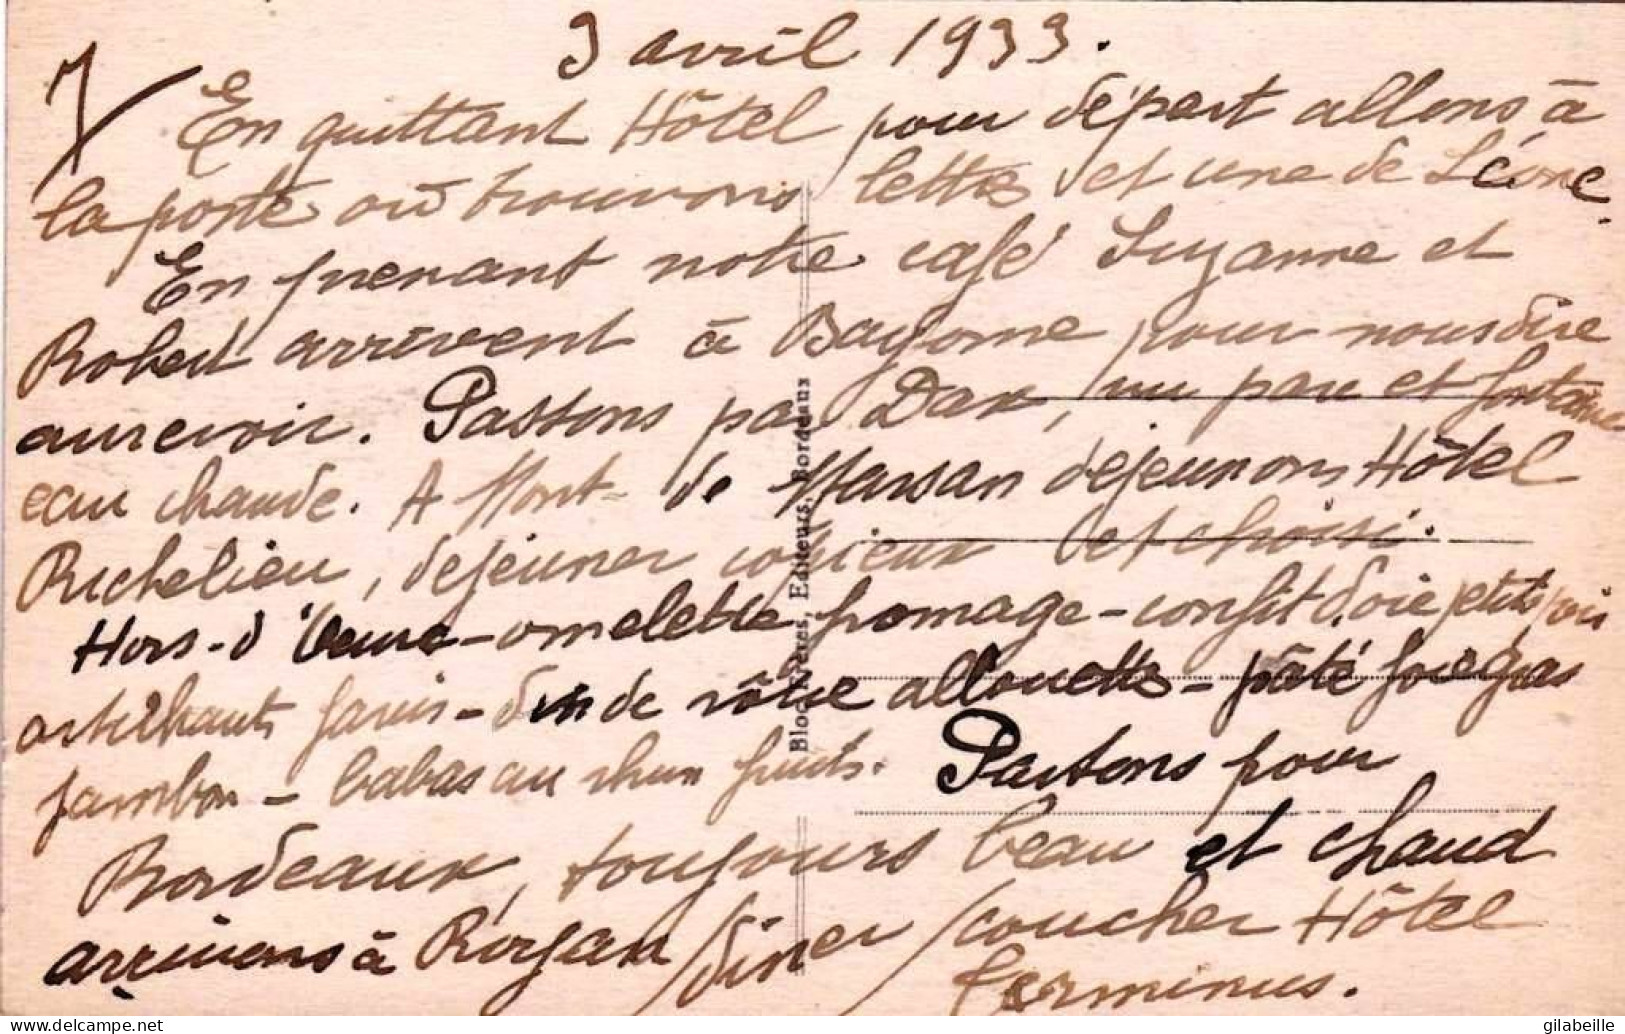 3 avril 1933.
7/ En quittant Hôtel pour départ allons à
la poste où trouvons lettre et une de Léone.
En prenant notre café Suzanne et
Robert arrivent à Bayonne pour nous dire
aurevoir. Passons par Dax, vu parc et fontaine
eau chaude. A Mont-de Marsan déjeunons Hôtel
Richelieu, déjeuner copieux et choisi.
Hors-d'œuvre-omelette fromage-confit d'oie petits pois
artichauts farcis-dinde rôtie allouettes-pâté foie gras
jambon-babas au rhum fruits. Partons pour
Bordeaux, toujours beau et chaud
arrivons à Royan/diner/coucher Hôtel
Terminus.
Bloc Frères, Editeurs, Bordeaux
gilabeille